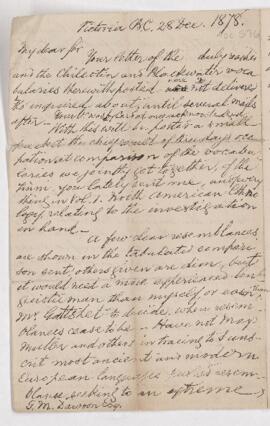 Victoria B.C. 28 Dec. 1878.
My dear Sir
Your letter of the duly reached
and the Chilcotin and Blackwater voca
bularies therewith posted not delivered
inquired about, until several mails
after
With this will be posted a small
packet the chief result of three days occu
pation at comparison of the vocabu
laries we jointly got together, of the
from you lately sent me, and every
thing in Vol. 1. North American Ethno
logy relating to the investigation
in hand
A few clear resemblances
are shown in the tabulated compari
son sent, others given are dim, but
it would need a more experienced lin
guistic man than myself, or even
Mr. Gatschet to decide, where resem
blances cease to be - Have not Max
Muller and others in tracing to Sans
crit most ancient and modern
European languages carried resem
blance seeking to an extreme
G. M. Dawson Esq.